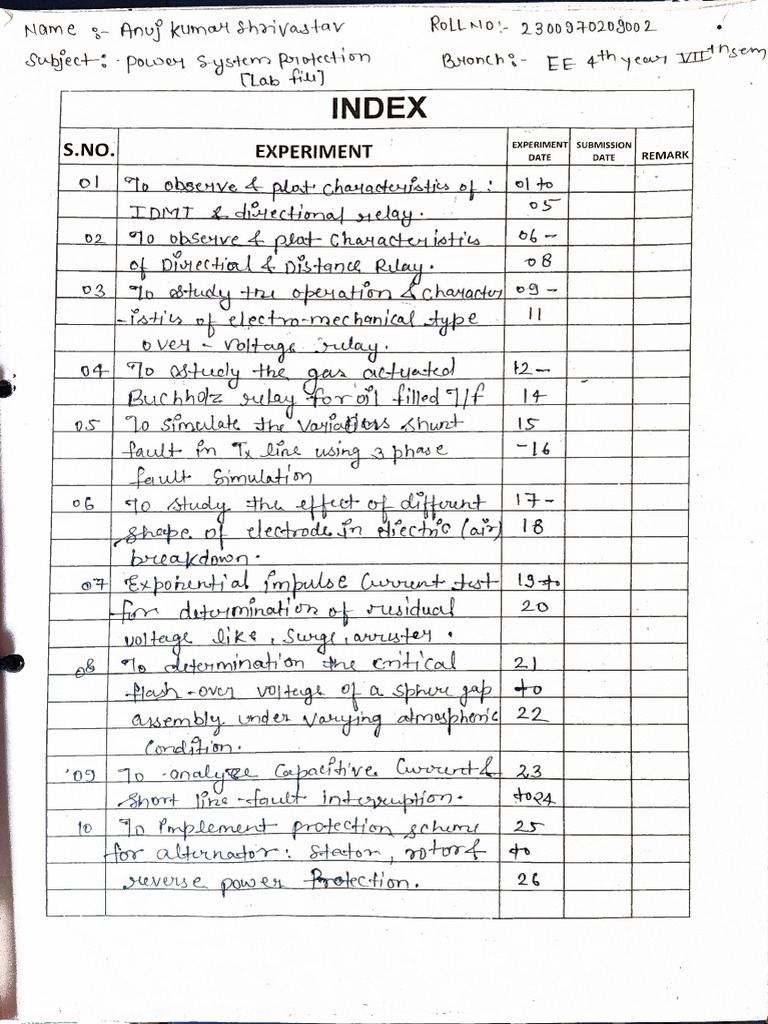 Name :- Anuj Kumar Shrivastav
Roll No :- 2300970209002
Subject: Power System Protection
[Lab file]
Branch :- EE 4th year VIIth sem
INDEX
S.NO. EXPERIMENT EXPERIMENT DATE SUBMISSION DATE REMARK
01 To observe & plat characteristics of : 01 to
IDMT & directional relay. 05
02 To observe & plat characteristics 06 -
of Directial & Distance Relay. 08
03 To study the operation & character 09 -
-istics of electro-mechanical type 11
over - voltage relay.
04 To study the gas actuated 12 -
Buchholz relay for oil filled T/f 14
05 To simulate the shunt 15
fault in Tx line using 3 phase -16
fault Simulation
06 To study the effect of different 17 -
shape of electrode in electric (air) 18
breakdown.
07 Exponential impulse current test 19 to
for determination of residual 20
voltage like, surge, arrester.
08 To determination the critical 21
flash-over voltage of a sphere gap to
assembly under varying atmospheric 22
Condition.
09 To analyze Capacitive Current & 23
short line-fault interruption. to 24
10 To implement protection scheme 25
for alternator: Stator, rotor & to
reverse power Protection. 26